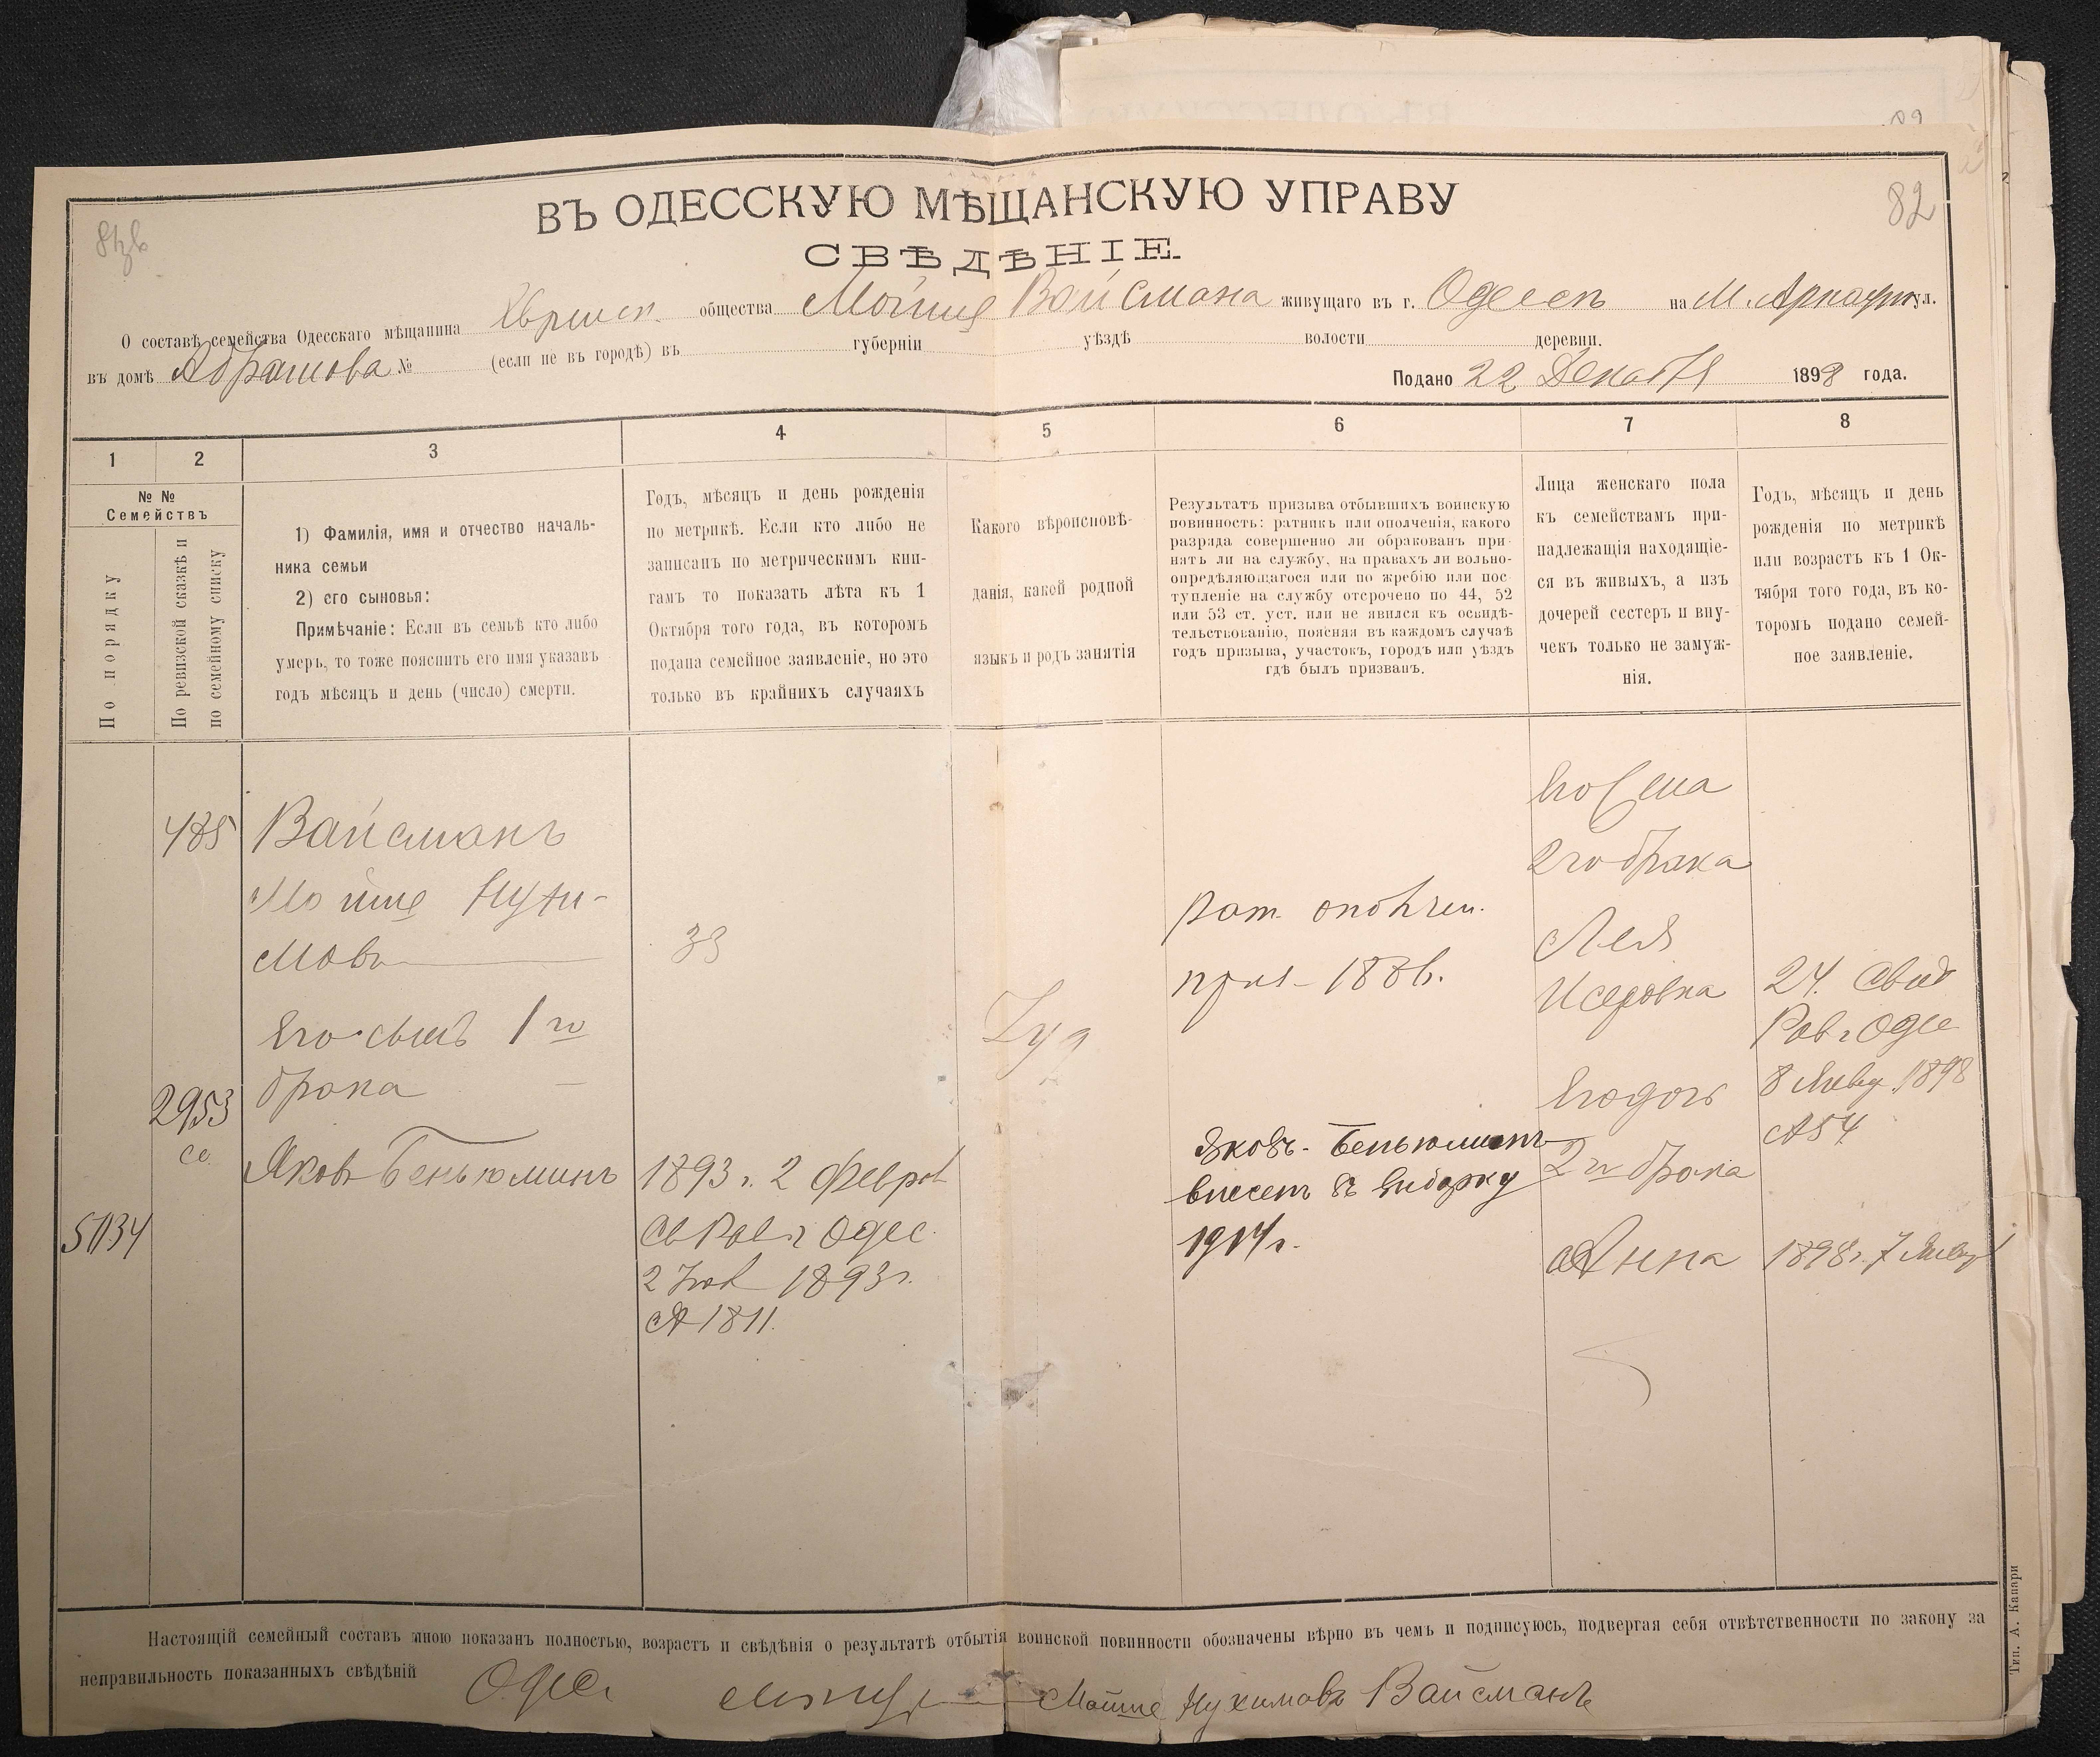 82
ВЪ ОДЕССКУЮ МѢЩАНСКУЮ УПРАВУ
СВѢДѢНІЕ
О составѣ семейства Одесскаго мѣщанина Еврейск. общества Мойше Вайсмана живущаго въ г. Одессѣ на М. Арнаутул.
въ домѣ Абрамова № (если не въ городѣ) въ губерніи уѣздѣ волости деревни.
Подано 22 Декабря 1898 года.
1 2 3 4 5 6 7 8
№ №
Семействъ
По порядку
По ревизской сказкѣ и
по семейному списку
1) Фамилія, имя и отчество началь-
ника семьи
2) его сыновья:
Примѣчаніе: Если въ семьѣ кто либо
умеръ, то тоже пояснить его имя указавъ
годъ мѣсяцъ и день (число) смерти.
Годъ, мѣсяцъ и день рожденія
по метрикѣ. Если кто либо не
записанъ по метрическимъ кни-
гамъ то показать лѣта къ 1
Октября того года, въ которомъ
подана семейное заявленіе, но это
только въ крайнихъ случаяхъ
Какого вѣроисповѣ-
данія, какой родной
языкъ и родъ занятія
Результатъ призыва отбывшихъ воинскую
повинность: ратникъ или ополченія, какого
разряда совершенно ли обракованъ при-
нятъ ли на службу, на правахъ ли вольно-
опредѣляющагося или по жребію или пос-
тупленіе на службу отсрочено по 44, 52
или 53 ст. уст. или не явился къ освидѣ-
тельствованію, поясняя въ каждомъ случаѣ
годъ призыва, участокъ, городъ или уѣздъ
гдѣ былъ призванъ.
Лица женскаго пола
къ семействамъ при-
надлежащія находящіе-
ся въ живыхъ, а изъ
дочерей сестеръ и вну-
чекъ только не замуж-
нія.
Годъ, мѣсяцъ и день
рожденія по метрикѣ
или возрастъ къ 1 Ок-
тября того года, въ ко-
торомъ подано семей-
ное заявленіе.
485
Вайсманъ
Мойше Нухи-
мовъ
33
Его сынъ 1го
брака
2953
се
Яковъ Беньюминъ
5134
1893 г. 2 Феврал
Св Рав г Одес.
2 Іюл 1893 г.
№ 1811.
Іуд
рат. ополчен.
приз - 1886.
Яковъ-Беньюминъ
внесенъ въ выборку
1914 г.
Его жена
2го брака
Лея
Исеровна
24. Свид
Рав г Одес
8 Январ 1898
№ 54
Его дочь
2го брака
Анна
1898 г. 7 Январ
Настоящій семейный составъ мною показанъ полностью, возрастъ и свѣдѣнія о результатѣ отбытія воинской повинности обозначены вѣрно въ чемъ и подписуюсь, подвергая себя отвѣтственности по закону за
неправильность показанныхъ свѣдѣній Одес. мѣщ. Мойше Нухимовъ Вайсманъ
Тип. А. Капари